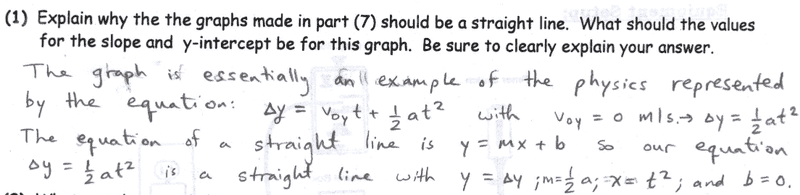 (1) Explain why the the graphs made in part (7) should be a straight line. What should the values
for the slope and y-intercept be for this graph. Be sure to clearly explain your answer.
The graph is essentially an example of the physics represented
by the equation: Δy = v₀yt + ½at² with v₀y = 0 m/s.→ Δy = ½at²
The equation of a straight line is y = mx + b so our equation
Δy = ½at² is a straight line with y = Δy ; m=½a; x= t²; and b=0.